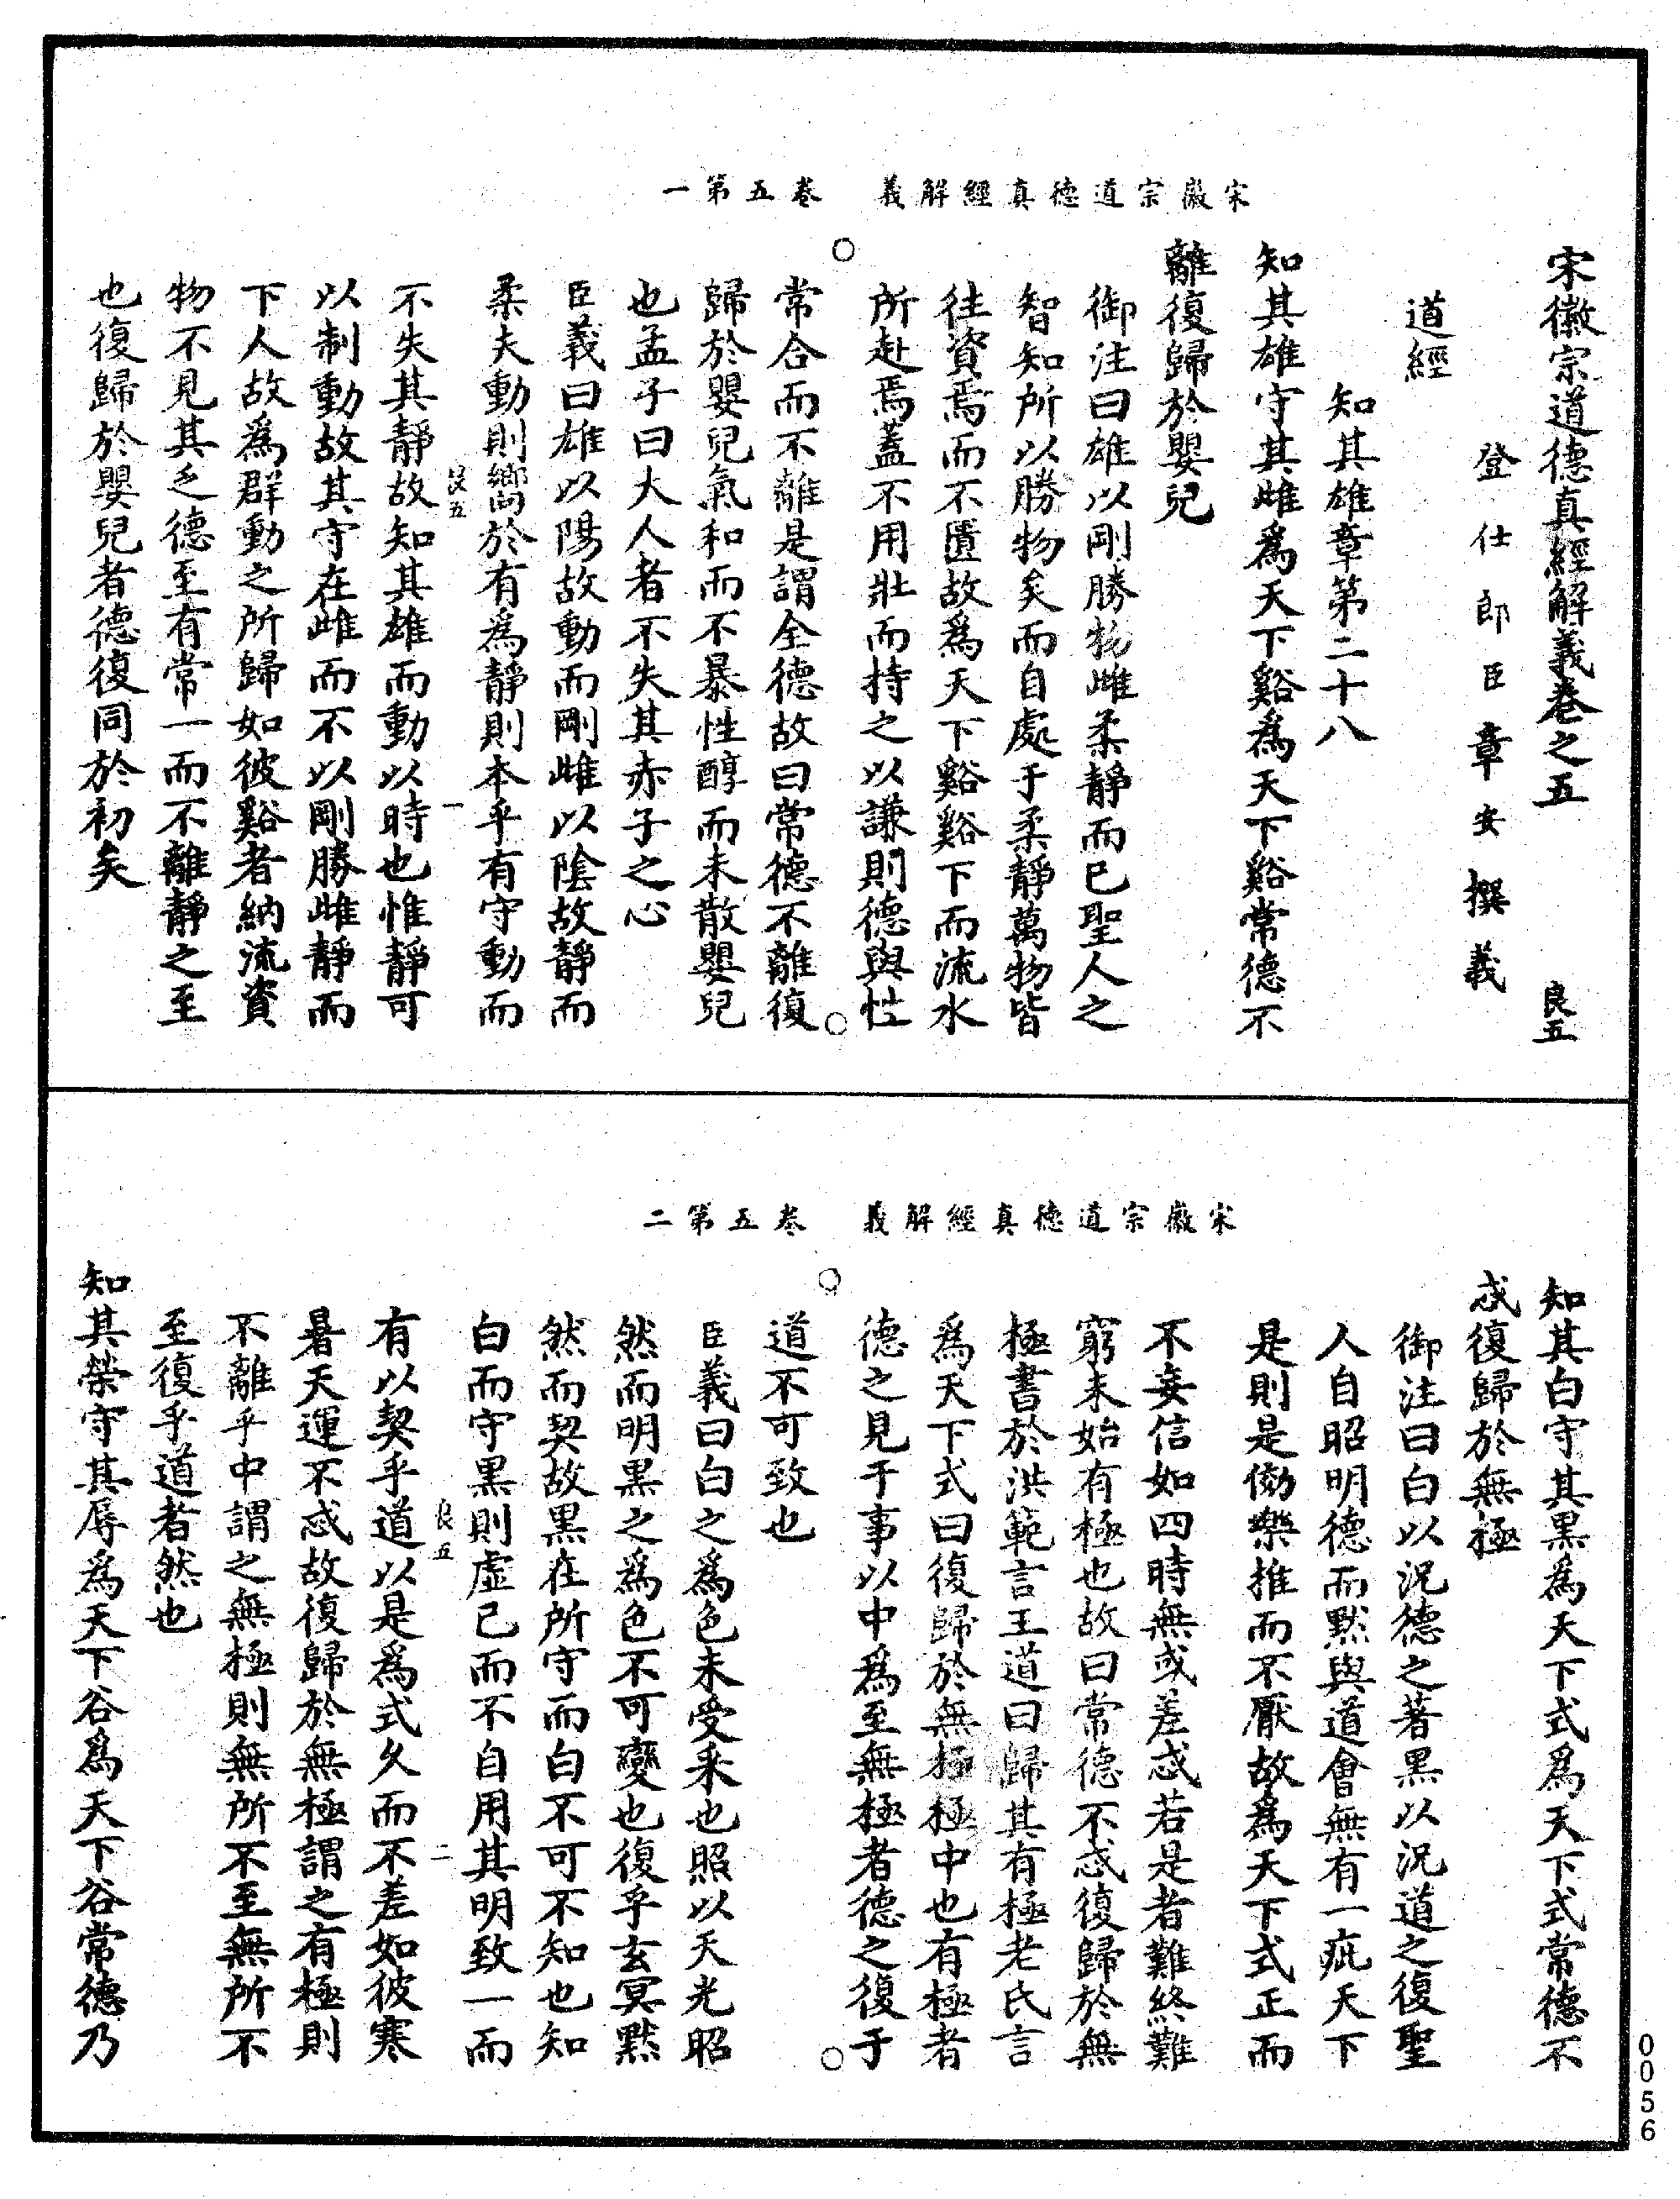 宋徽宗道德真經解義　卷五第一
宋徽宗道德真經解義卷之五　良五
登仕郎臣章安撰義
道經
知其雄章第二十八
知其雄守其雌爲天下谿爲天下谿常德不
離復歸於嬰兒
御注曰雄以剛勝物雌柔靜而已聖人之
智知所以勝物矣而自處于柔靜萬物皆
往資焉而不匱故爲天下谿谿下而流水
所赴焉蓋不用壯而持之以謙則德與性
常合而不離是謂全德故曰常德不離復
歸於嬰兒氣和而不暴性醇而未散嬰兒
也孟子曰大人者不失其赤子之心
臣義曰雄以陽故動而剛雌以陰故靜而
柔夫動則嚮於有爲靜則本乎有守動而
良五　一
不失其靜故知其雄而動以時也惟靜可
以制動故其守在雌而不以剛勝雌靜而
下人故爲群動之所歸如彼谿者納流資
物不見其乏德至有常一而不離靜之至
也復歸於嬰兒者德復同於初矣
宋徽宗道德真經解義　卷五第二
知其白守其黑爲天下式爲天下式常德不
忒復歸於無極
御注曰白以況德之著黑以況道之復聖
人自昭明德而默與道會無有一疵天下
是則是傚樂推而不厭故爲天下式正而
不妄信如四時無或差忒若是者難終難
窮未始有極也故曰常德不忒復歸於無
極書於洪範言王道曰歸其有極老氏言
爲天下式曰復歸於無極極中也有極者
德之見于事以中爲至無極者德之復于
道不可致也
臣義曰白之爲色未受采也照以天光昭
然而明黑之爲色不可變也復乎玄冥黙
然而契故黑在所守而白不可不知也知
白而守黑則虛己而不自用其明致一而
良五　二
有以契乎道以是爲式久而不差如彼寒
暑天運不忒故復歸於無極謂之有極則
不離乎中謂之無極則無所不至無所不
至復乎道者然也
知其榮守其辱爲天下谷爲天下谷常德乃
0056